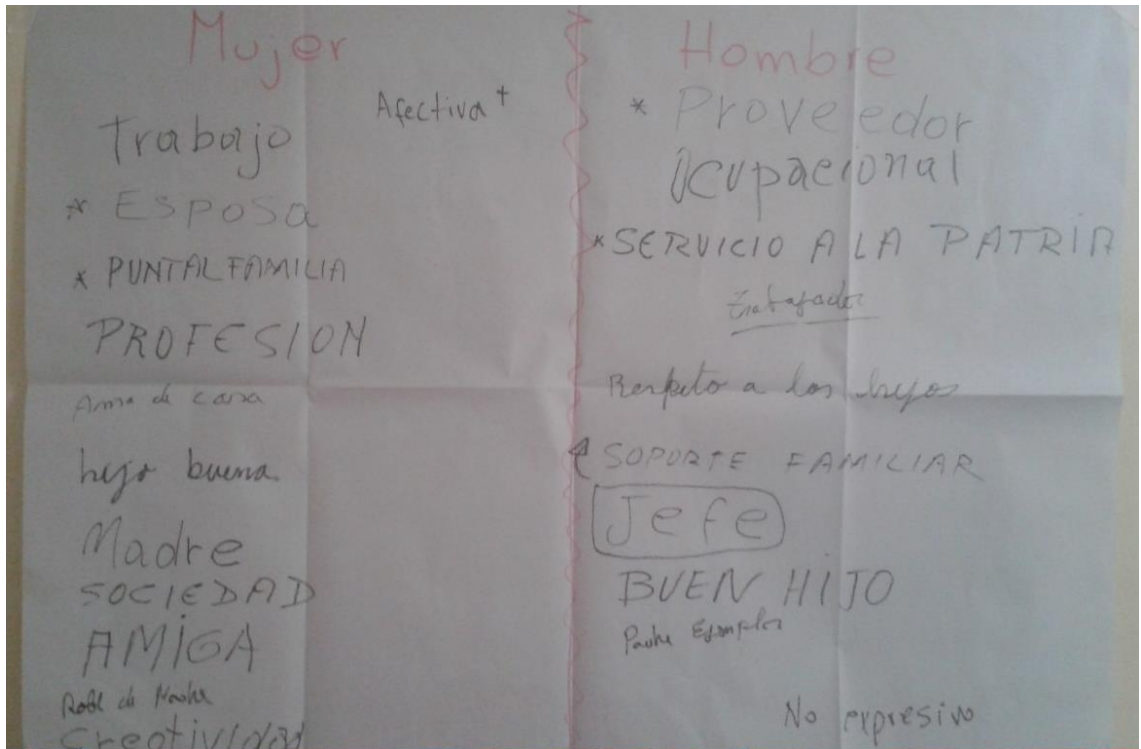 Mujer
Afectiva +
Trabajo
* ESPOSA
* PUNTAL FAMILIA
PROFESION
Ama de casa
hija buena
Madre
SOCIEDAD
AMIGA
de Madre
Creatividad
Hombre
* Proveedor
Ocupacional
* SERVICIO A LA PATRIA
trabajador
Respeto a los hijos
SOPORTE FAMILIAR
Jefe
BUEN HIJO
Padre Ejemplar
No expresivo